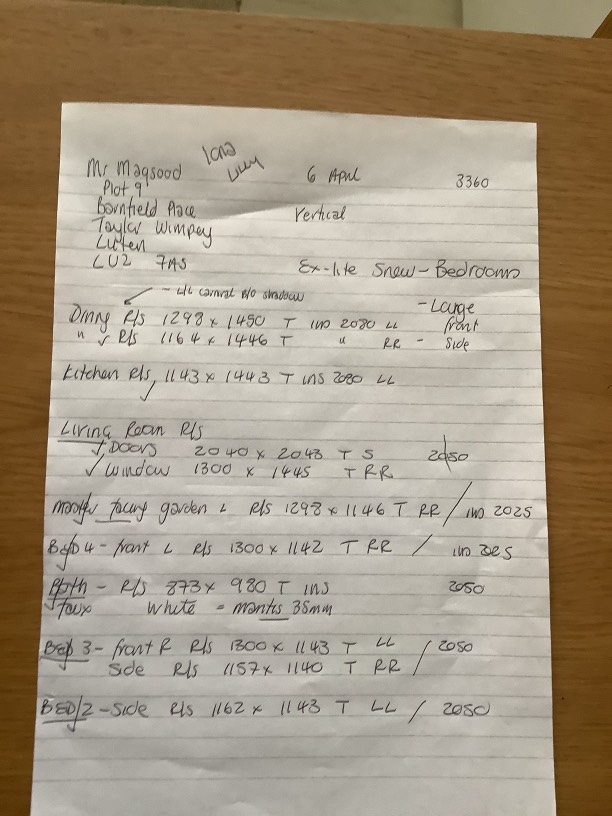 Mr Maqsood 6 April 3360
Plot 9
Barnfield Place Vertical
Taylor Wimpey
Luton
LU2 7AS Ex-lite Snow - Bedrooms
R/s 1298 x 1450 T ins 2080 LL - Large front
" R/s 1164 x 1446 T " RR - side
Kitchen R/s 1143 x 1443 T ins 2080 LL
Living Room R/s
Doors 2040 x 2043 T S 2050
Window 1300 x 1445 T RR
facing garden L R/s 1298 x 1146 T RR / ins 2025
Bed 4 - front L R/s 1300 x 1142 T RR / ins
Bath - R/s 873 x 980 T ins 2050
faux White = mantis 35mm
Bed 3 - front R R/s 1300 x 1143 T LL / 2050
Side R/s 1157 x 1140 T RR /
BED/2 - Side R/s 1162 x 1143 T LL / 2050